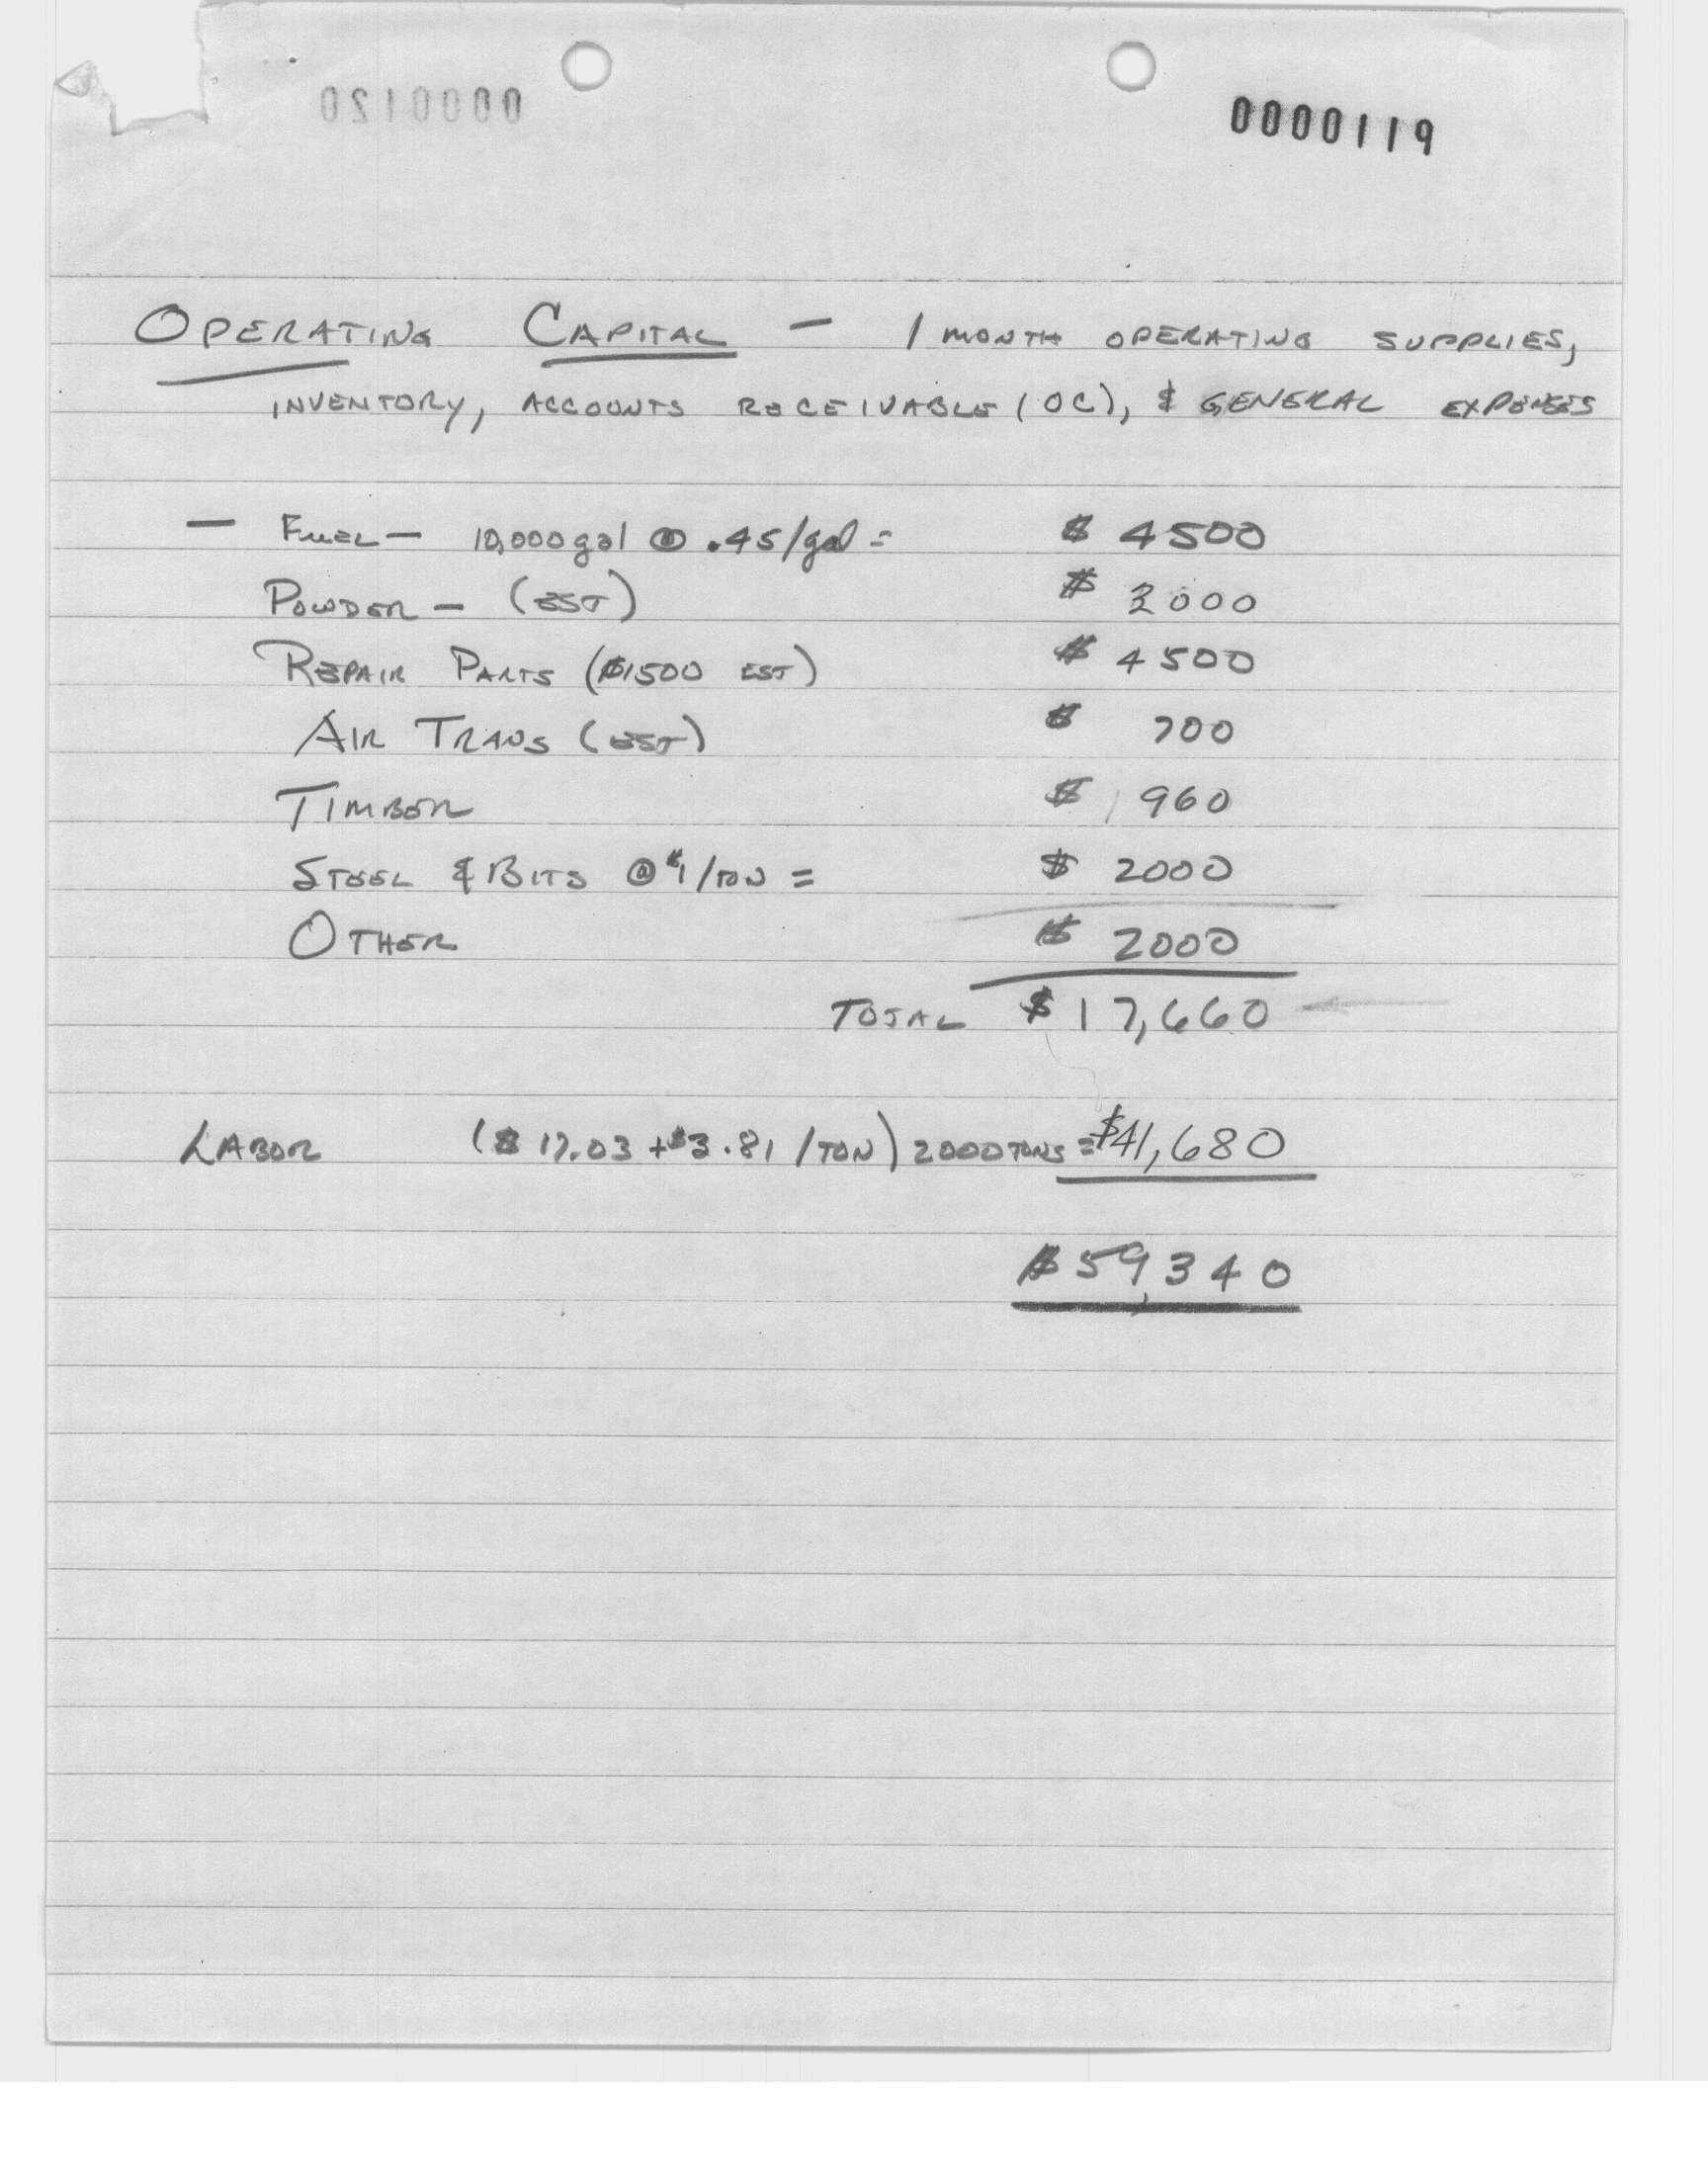 0000120
0000119
OPERATING CAPITAL — 1 MONTH OPERATING SUPPLIES,
INVENTORY, ACCOUNTS RECEIVABLE (OC), & GENERAL EXPENSES
— FUEL — 10,000 gal @ .45/gal = $ 4500
POWDER — (EST) $ 3000
REPAIR PARTS ($1500 EST) $ 4500
AIR TRANS (EST) $ 700
TIMBER $ 960
STEEL & BITS @ $1/TON = $ 2000
OTHER $ 2000
TOTAL $ 17,660
LABOR ($ 17.03 + $3.81 /TON) 2000 TONS = $41,680
$59,340